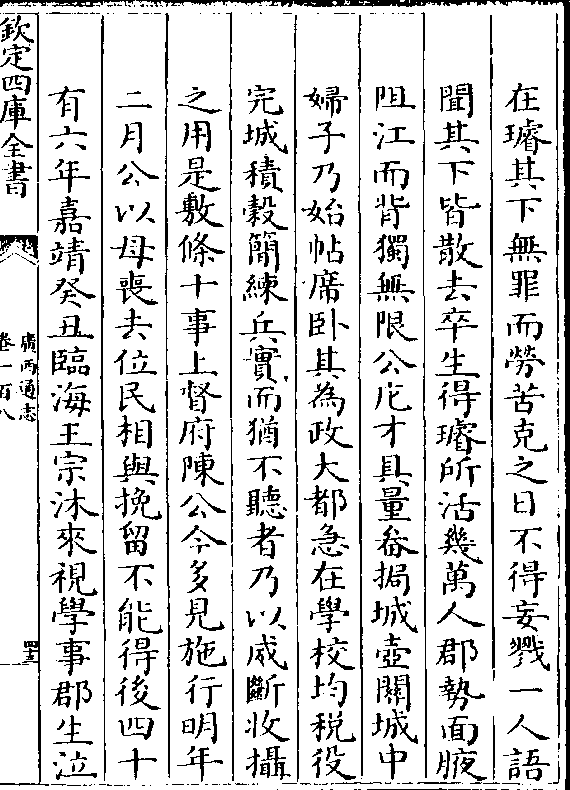 在璿其下無罪而勞苦克之日不得妄戮一人語
聞其下皆散去卒生得璿所活幾萬人郡勢面腋
阻江而背獨無限公庀才具量畚挶城壺關城中
婦子乃始帖席卧其為政大都急在學校均税役
完城積穀簡練兵實而猶不聽者乃以威斷收攝
之用是敷條十事上督府陳公今多見施行明年
二月公以母喪去位民相與挽留不能得後四十
有六年嘉靖癸丑臨海王宗沐來視學事郡生泣
欽定四庫全書
廣西通志
卷一百八
四十三